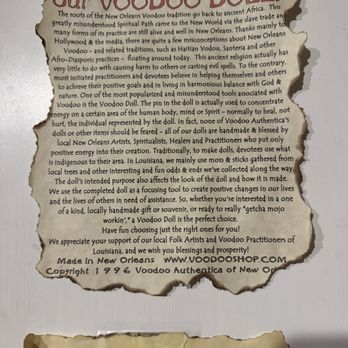 our VOODOO DOLLS
The roots of the New Orleans Voodoo tradition go back to ancient Africa. This
greatly misunderstood Spiritual Path came to the New World via the slave trade and
many forms of its practice are still alive and well in New Orleans. Thanks mainly to
Hollywood & the media, there are quite a few misconceptions about New Orleans
Voodoo - and related traditions, such as Haitian Vodou, Santeria and other
Afro-Diasporic practices - floating around today. This ancient religion actually has
very little to do with causing harm to others or casting evil spells. To the contrary,
most initiated practitioners and devotees believe in helping themselves and others
to achieve their positive goals and in living in harmonious balance with God &
Nature. One of the most popularized and misunderstood tools associated with
Voodoo is the Voodoo Doll. The pin in the doll is actually used to concentrate
energy on a certain area of the human body, mind or Spirit - normally to heal, not
hurt, the individual represented by the doll. In fact, none of Voodoo Authentica's
dolls or other items should be feared - all of our dolls are handmade & blessed by
local New Orleans Artists, Spiritualists, Healers and Practitioners who put only
positive energy into their creation. Traditionally, to make dolls, devotees use what
is indigenous to their area. In Louisiana, we mainly use moss & sticks gathered from
local trees and other interesting and fun odds & ends we've collected along the way.
The doll's intended purpose also affects the look of the doll and how it is made.
We use the completed doll as a focusing tool to create positive changes in our lives
and the lives of others in need of assistance. So, whether you're interested in a one
of a kind, locally handmade gift or souvenir, or ready to really "getcha mojo
workin'," a Voodoo Doll is the perfect choice.
Have fun choosing just the right ones for you!
We appreciate your support of our local Folk Artists and Voodoo Practitioners of
Louisiana, and we wish you blessings and prosperity!
Made in New Orleans www.VOODOOSHOP.COM
Copyright 1996 Voodoo Authentica of New Or